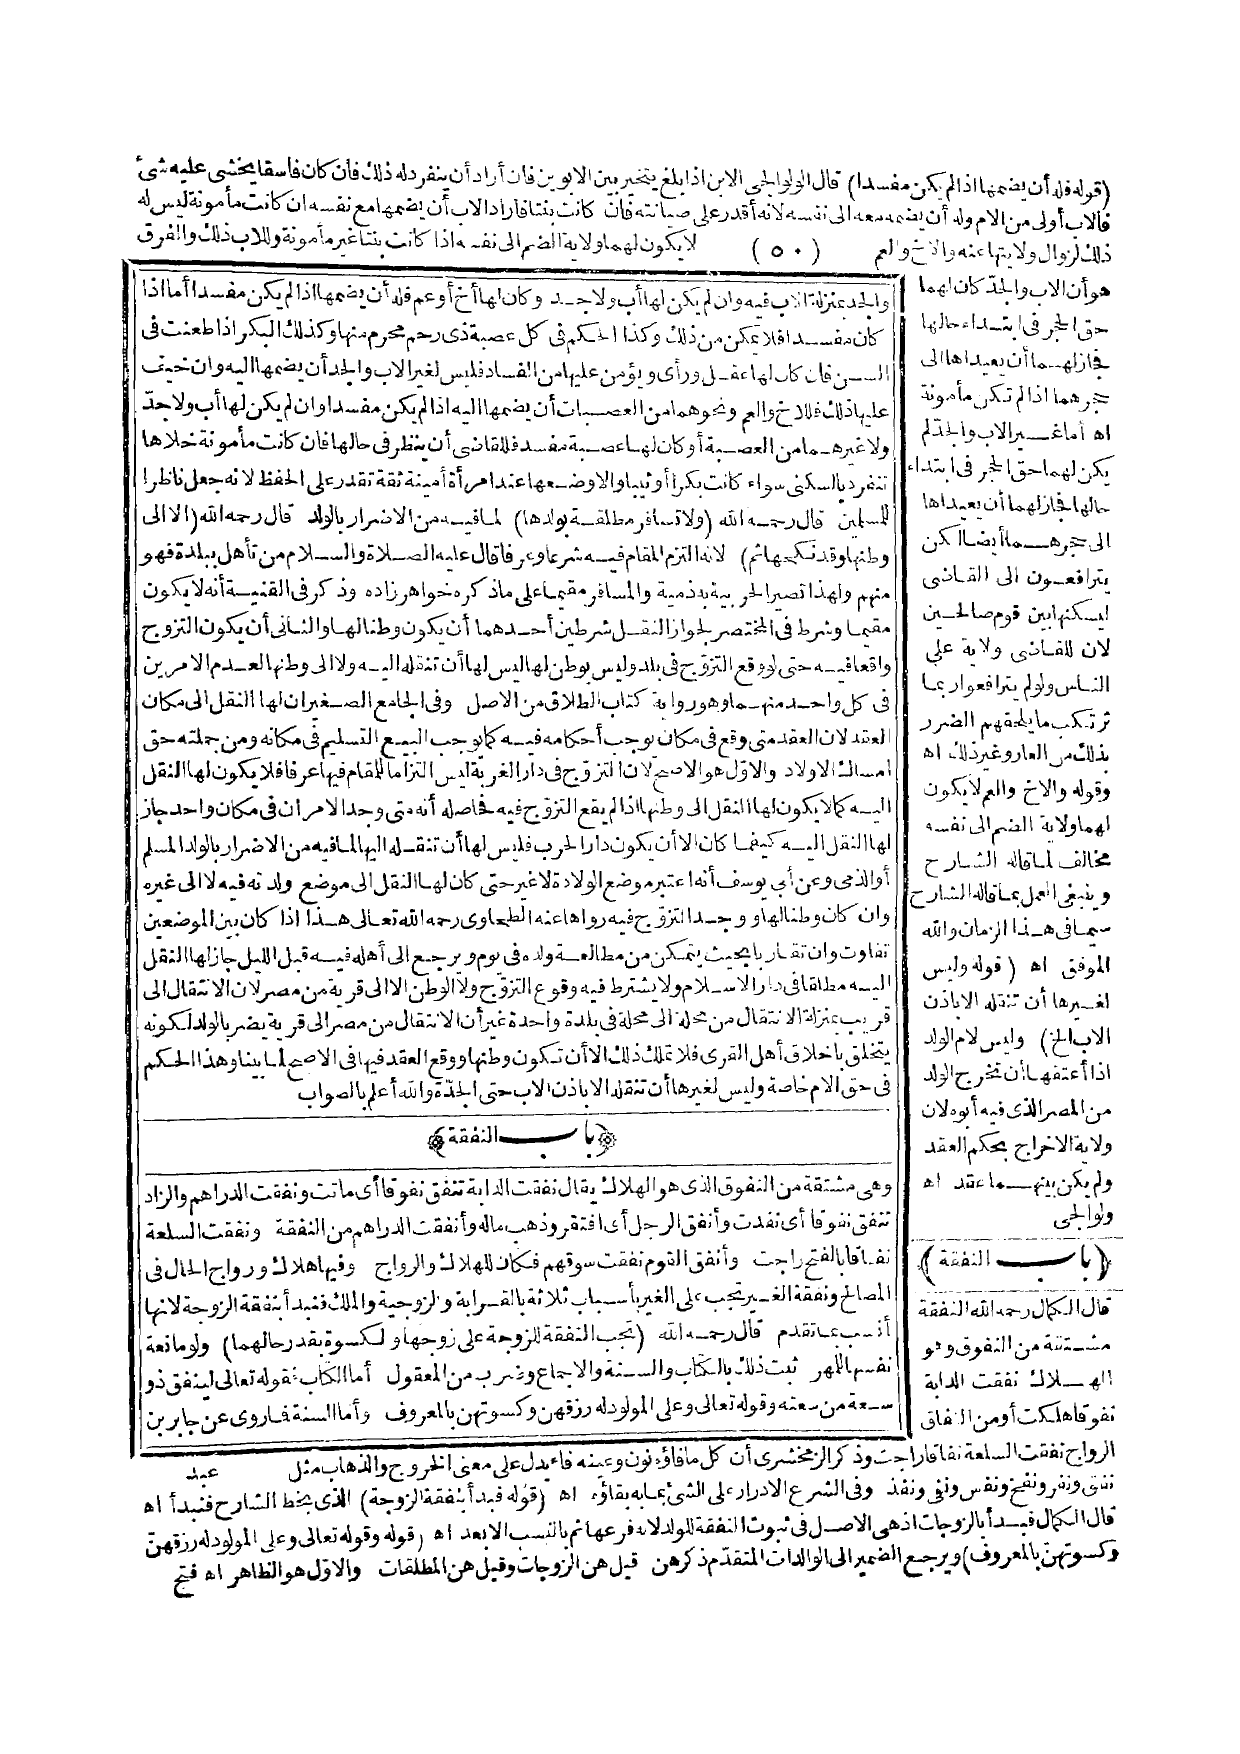 (قوله فله أن يضمها اذا لم يكن مفسدا) قال الولوالجى الابن اذا بلغ يتخير بين الابوين فان أراد أن ينفرد له ذلك فان كان فاسقا يخشى عليه شئ
فالاب أولى من الام وله أن يضمه معه الى نفسه لانه أقدر على صيانته فان كانت بنتا فاراد الاب أن يضمها مع نفسه ان كانت مأمونة ليس له
ذلك لزوال ولايتها عنه والاخ والعم (٥٠) لا يكون لهما ولاية الضم الى نفسه اذا كانت بنتا غير مأمونة وللاب ذلك والفرق
هو أن الاب والجد كان لهما
حق الحجر فى ابتداء حالها
فجاز لهما أن يعيداها الى
حجرهما اذا لم تكن مأمونة
اه أما غير الاب والجد لم
يكن لهما حق الحجر فى ابتداء
حالها فجاز لهما أن يعيداها
الى حجرهما أيضا لكن
يترافعون الى القاضى
ليسكنها بين قوم صالحين
لان للقاضى ولاية على
الناس ولو لم يترافعوا ربما
ترتكب ما يلحقهم الضرر
بذلك من العار وغير ذلك اه
وقوله والاخ والعم لا يكون
لهما ولاية الضم الى نفسه
مخالف لما قاله الشارح
وينبغى العمل بما قاله الشارح
سيما فى هذا الزمان والله
الموفق اه (قوله وليس
لغيرها أن تنقله الا باذن
الاب الخ) وليس لام الولد
اذا أعتقها أن تخرج الولد
من المصر الذى فيه أبوه لان
ولاية الاخراج بحكم العقد
ولم يكن بينهما عقد اه
ولوالجى
﴿باب النفقة﴾
قال الكمال رحمه الله النفقة
مشتقة من النفوق وهو
الهلاك نفقت الدابة
نفوقا هلكت أو من النفاق
والجد بمنزلة الاب فيه وان لم يكن لها أب ولا جد وكان لها أخ أو عم فله أن يضمها اذا لم يكن مفسدا أما اذا
كان مفسدا فلا يمكن من ذلك وكذا الحكم فى كل عصبة ذى رحم محرم منها وكذلك البكر اذا طعنت فى
السن فان كان لها عقل ورأى ويؤمن عليها من الفساد فليس لغير الاب والجد أن يضمها اليه وان خيف
عليها ذلك فللاخ والعم ونحوهما من العصبات أن يضمها اليه اذا لم يكن مفسدا وان لم يكن لها أب ولا جدّ
ولا غيرهما من العصبة أو كان لها عصبة مفسد فللقاضى أن ينظر فى حالها فان كانت مأمونة خلاها
تنفرد بالسكنى سواء كانت بكرا أو ثيبا والا وضعها عند امرأة أمينة ثقة تقدر على الحفظ لانه جعل ناظرا
للمسلمين قال رحمه الله (ولا تسافر مطلقة بولدها) لما فيه من الاضرار بالولد قال رحمه الله (الا الى
وطنها وقد نكحها ثم) لانه التزم المقام فيه شرعا وعرفا قال عليه الصلاة والسلام من تأهل ببلدة فهو
منهم ولهذا تصير الحربية به ذمية والمسافر مقيما على ما ذكره خواهرزاده وذكر فى القنية أنه لا يكون
مقيما وشرط فى المختصر لجواز النقل شرطين أحدهما أن يكون وطنا لها والثانى أن يكون التزوج
واقعا فيه حتى لو وقع التزوّج فى بلد وليس بوطن لها ليس لها أن تنقله اليه ولا الى وطنها لعدم الامرين
فى كل واحد منهما وهو رواية كتاب الطلاق من الاصل وفى الجامع الصغير ان لها النقل الى مكان
العقد لان العقد متى وقع فى مكان يوجب أحكامه فيه كما يوجب البيع التسليم فى مكانه ومن جملته حق
امساك الاولاد والاوّل هو الاصح لان التزوّج فى دار الغربة ليس التزاما للمقام فيها عرفا فلا يكون لها النقل
اليه كما لا يكون لها النقل الى وطنها اذا لم يقع التزوّج فيه فحاصله أنه متى وجد الامران فى مكان واحد جاز
لها النقل اليه كيفما كان الا أن يكون دار الحرب فليس لها أن تنقله اليها لما فيه من الاضرار بالولد المسلم
أو الذمى وعن أبى يوسف أنه اعتبر موضع الولادة لا غير حتى كان لها النقل الى موضع ولدته فيه لا الى غيره
وان كان وطنا لها ووجد التزوّج فيه رواها عنه الطحاوى رحمه الله تعالى هذا اذا كان بين الموضعين
تفاوت وان تقاربا بحيث يتمكن من مطالعة ولده فى يوم ويرجع الى أهله فيه قبل الليل جاز لها النقل
اليه مطلقا فى دار الاسلام ولا يشترط فيه وقوع التزوّج ولا الوطن الا الى قرية من مصر لان الانتقال الى
قريب بمنزلة الانتقال من محلة الى محلة فى بلدة واحدة غير أن الانتقال من مصر الى قرية يضر بالولد لكونه
يتخلق باخلاق أهل القرى فلا تملك ذلك الا أن تكون وطنها ووقع العقد فيها فى الاصح لما بينا وهذا الحكم
فى حق الام خاصة وليس لغيرها أن تنقله الا باذن الاب حتى الجدّة والله أعلم بالصواب
﴿باب النفقة﴾
وهى مشتقة من النفوق الذى هو الهلاك يقال نفقت الدابة تنفق نفوقا أى ماتت ونفقت الدراهم والزاد
تنفق نفوقا أى نفدت وأنفق الرجل أى افتقر وذهب ماله وأنفقت الدراهم من النفقة ونفقت السلعة
نفاقا بالفتح راجت وأنفق القوم نفقت سوقهم فكان للهلاك والرواج وفيها هلاك ورواج الحال فى
المصالح ونفقة الغير تجب على الغير بأسباب ثلاثة بالقرابة والزوجية والملك فنبدأ بنفقة الزوجة لانها
أنسب بما تقدم قال رحمه الله (تجب النفقة للزوجة على زوجها والكسوة بقدر حالهما) ولو مانعة
نفسها للمهر ثبت ذلك بالكتاب والسنة والاجماع وضرب من المعقول أما الكتاب فقوله تعالى لينفق ذو
سعة من سعته وقوله تعالى وعلى المولود له رزقهن وكسوتهن بالمعروف وأما السنة فما روى عن جابر بن
الرواج نفقت السلعة نفاقا راجت وذكر الزمخشرى أن كل ما فاؤه نون وعينه فاء يدل على معنى الخروج والذهاب مثل عبد
نفق ونفر ونفخ ونفس ونفى ونفذ وفى الشرع الادرار على الشئ بما به بقاؤه اه (قوله فنبدأ بنفقة الزوجة) الذى بخط الشارح فنبدأ اه
قال الكمال فبدأ بالزوجات اذ هى الاصل فى ثبوت النفقة للولد لانه فرعها ثم بالنسب الابعد اه (قوله وقوله تعالى وعلى المولود له رزقهن
وكسوتهن بالمعروف) ويرجع الضمير الى الوالدات المتقدّم ذكرهن قيل هن الزوجات وقيل هن المطلقات والاوّل هو الظاهر اه فتح